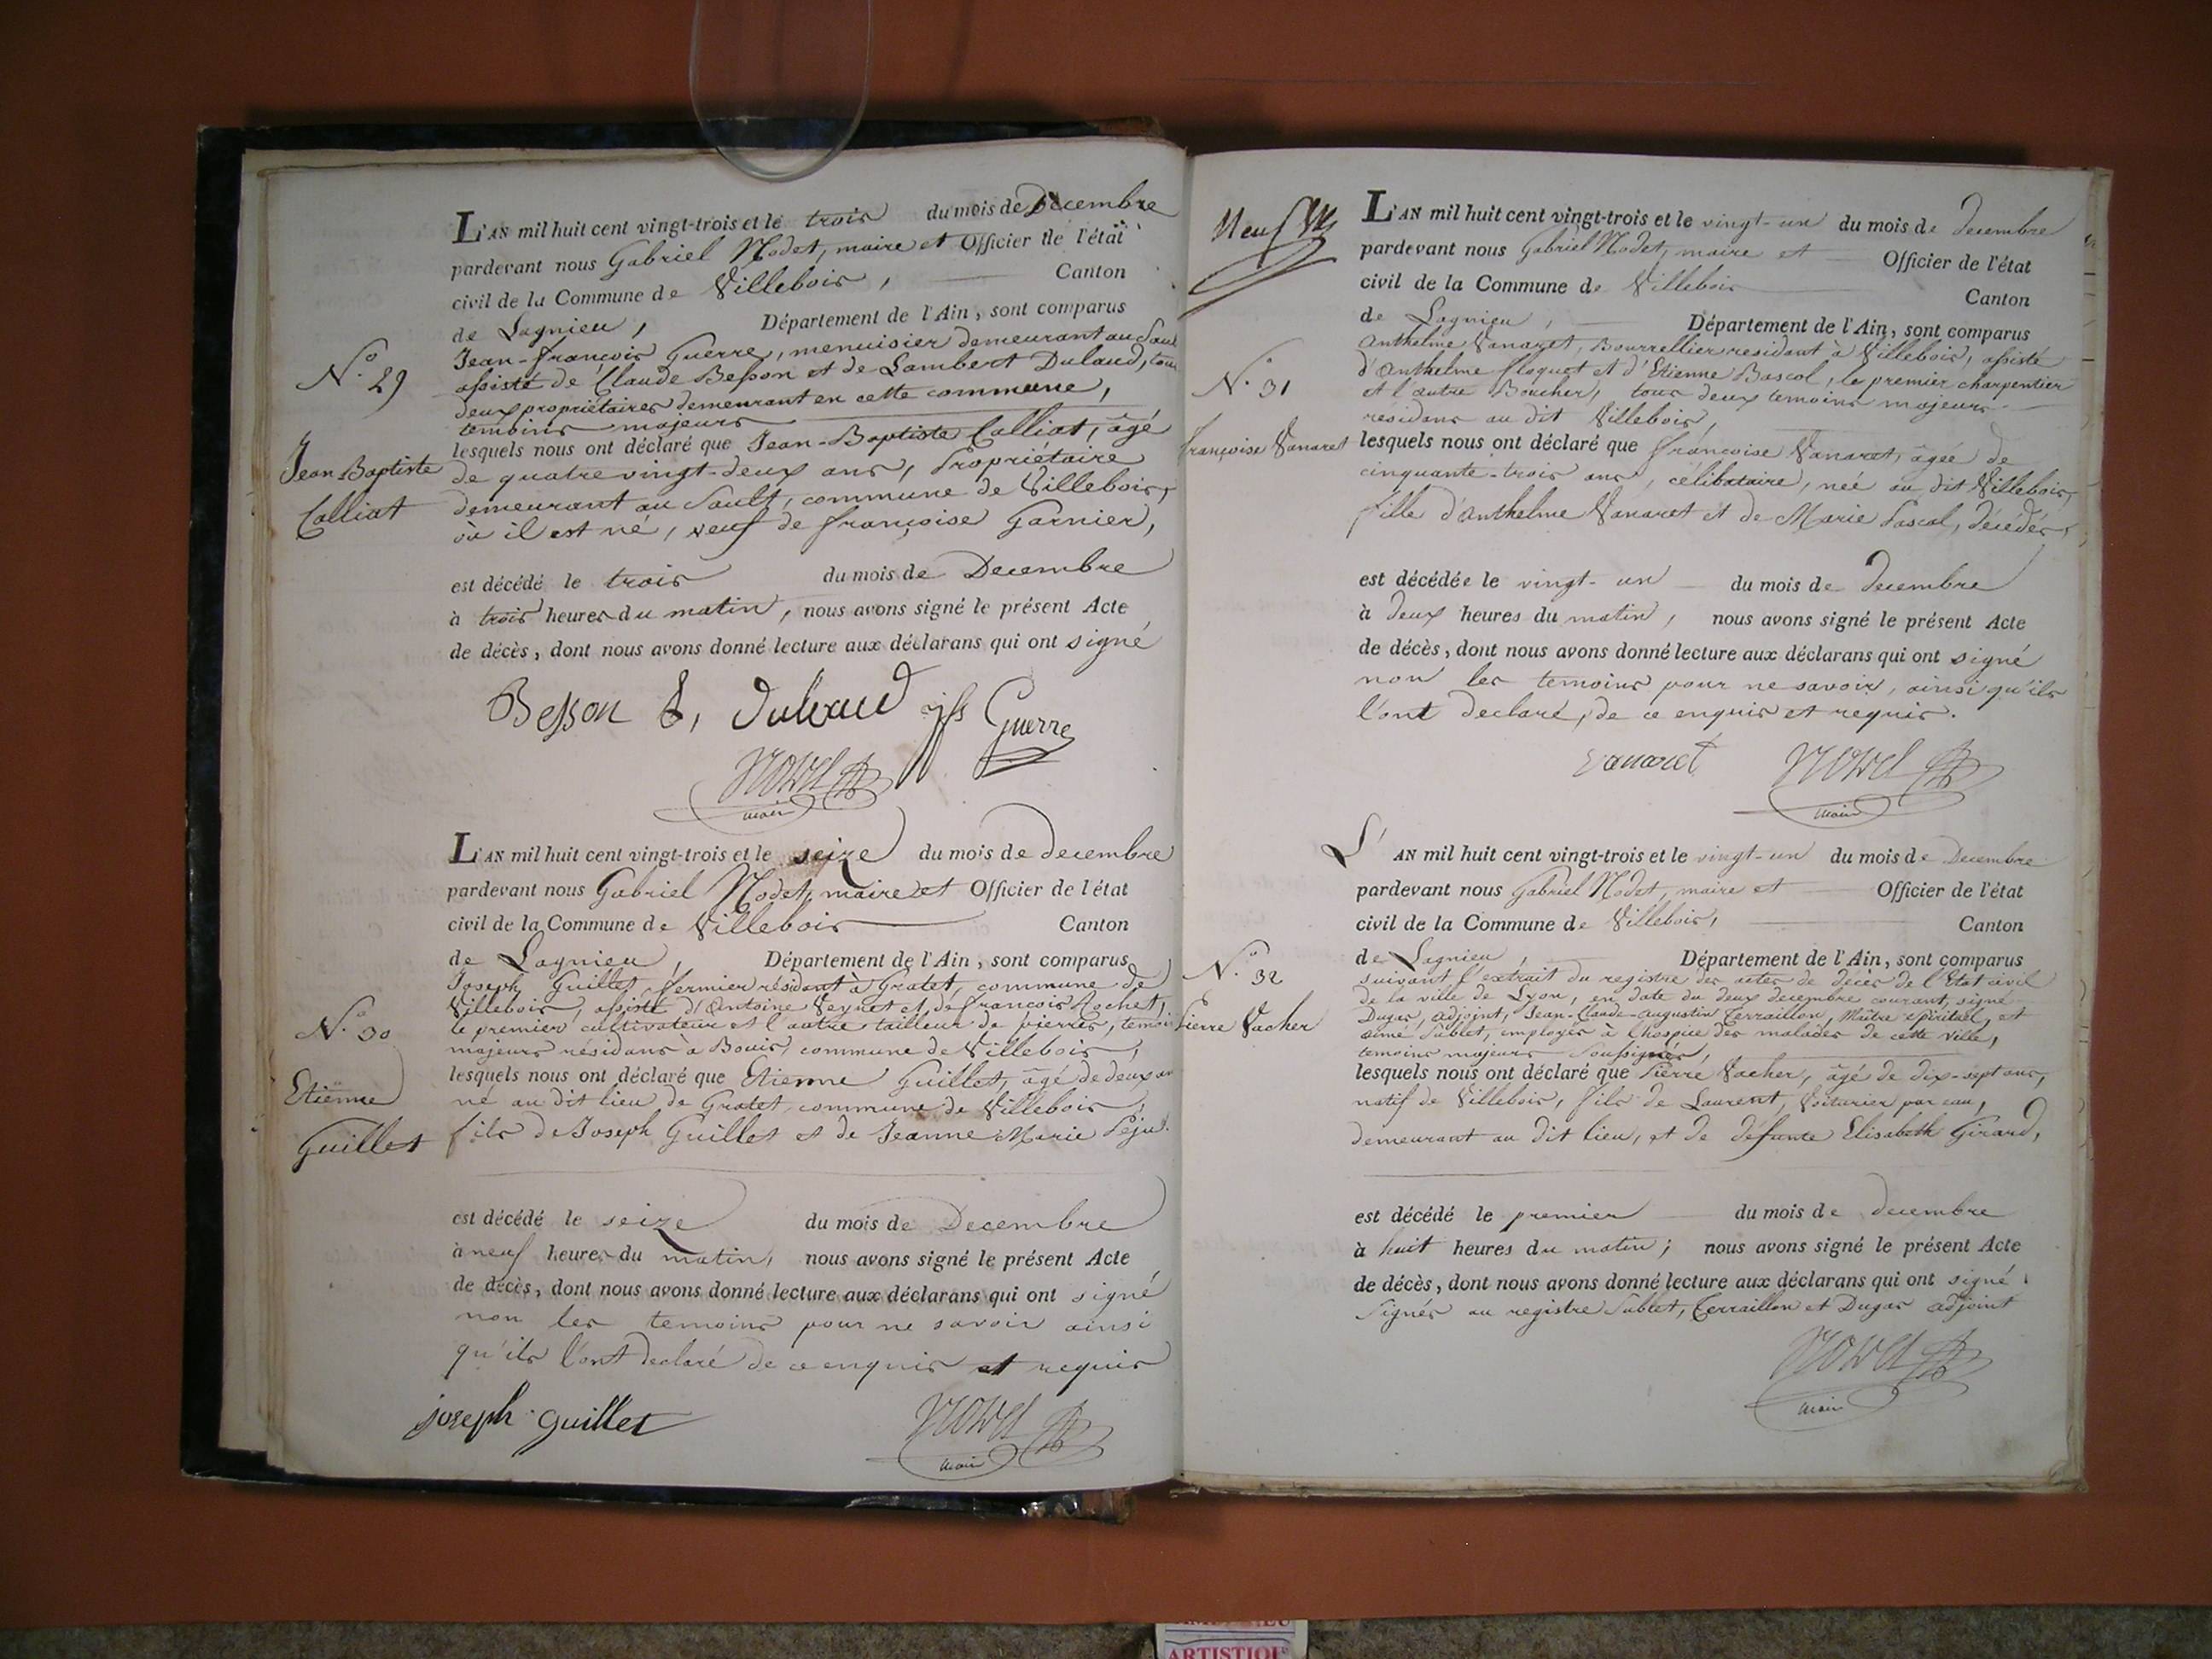 L'AN mil huit cent vingt-trois et le trois du mois de Décembre
pardevant nous Gabriel Nodet, maire et Officier de l'état
civil de la Commune de Villebois, Canton
de Lagnieu, Département de l'Ain, sont comparus
Jean-françois Guerre, menuisier demeurant au Sault
assisté de Claude Besson et de Lambert Dulaud, tous
deux propriétaires demeurant en cette commune,
temoins majeurs
lesquels nous ont déclaré que Jean-Baptiste Calliat, âgé
de quatre vingt-deux ans, Propriétaire
demeurant au Sault, commune de Villebois,
où il est né, veuf de françoise Garnier,
est décédé le trois du mois de Decembre
à trois heures du matin, nous avons signé le présent Acte
de décès, dont nous avons donné lecture aux déclarans qui ont signé
Besson L, Dulaud jfs Guerre
Nodet
maire
N.o 29
Jean Baptiste
Calliat
L'AN mil huit cent vingt-trois et le seize du mois de decembre
pardevant nous Gabriel Nodet, maire et Officier de l'état
civil de la Commune de Villebois Canton
de Lagnieu, Département de l'Ain, sont comparus
Joseph Guillet fermier résidant à Gratet, commune de
Villebois, assisté d'Antoine Veyret et de françois Rochet,
le premier cultivateur et l'autre tailleur de pierres, temoins
majeurs résidans à Bouis, commune de Villebois,
lesquels nous ont déclaré que Etienne Guillet, âgé de deux an
né au dit lieu de Gratet, commune de Villebois,
fils de Joseph Guillet et de Jeanne Marie Péju.
est décédé le seize du mois de Decembre
à neuf heures du matin, nous avons signé le présent Acte
de décès, dont nous avons donné lecture aux déclarans qui ont signé
non les temoins pour ne savoir ainsi
qu'ils l'ont declaré de ce enquis et requis
joseph Guillet Nodet
maire
N.o 30
Etienne
Guillet
Neuf
L'AN mil huit cent vingt-trois et le vingt-un du mois de decembre
pardevant nous Gabriel Nodet, maire et Officier de l'état
civil de la Commune de Villebois Canton
de Lagnieu, Département de l'Ain, sont comparus
Anthelme Vanaret, Bourrellier residant à Villebois, assisté
d'Anthelme floquet et d'Etienne Bascol, le premier charpentier
et l'autre Boucher, tous deux temoins majeurs
residans au dit Villebois,
lesquels nous ont déclaré que françoise Vanaret, âgée de
cinquante-trois ans, célibataire, née au dit Villebois,
fille d'Anthelme Vanaret et de Marie Pascal, décédés,
est décédée le vingt-un du mois de decembre
à deux heures du matin, nous avons signé le présent Acte
de décès, dont nous avons donné lecture aux déclarans qui ont signé
non les temoins pour ne savoir, ainsi qu'ils
l'ont declaré, de ce enquis et requis.
vanaret Nodet
maire
N.o 31
françoise Vanaret
L'AN mil huit cent vingt-trois et le vingt-un du mois de Decembre
pardevant nous Gabriel Nodet, maire et Officier de l'état
civil de la Commune de Villebois, Canton
de Lagnieu, Département de l'Ain, sont comparus
suivant l'extrait du registre des actes de décès de l'Etat civil
de la ville de Lyon, en date du deux decembre courant, signé
Dugas, adjoint, Jean-Claude-Augustin Terraillon, Maître spirituel, et
aimé Sublet, employés à l'hospice des malades de cette ville,
temoins majeurs soussignés,
lesquels nous ont déclaré que Pierre Vacher, âgé de dix-sept ans,
natif de Villebois, fils de Laurent, Voiturier par eau,
demeurant au dit lieu, et de défunte Elisabeth Girard,
est décédé le premier du mois de decembre
à huit heures du matin; nous avons signé le présent Acte
de décès, dont nous avons donné lecture aux déclarans qui ont signé
Signés au registre Sublet, Terraillon et Dugas adjoint
Nodet
maire
N.o 32
Pierre Vacher
ARTISTIQU